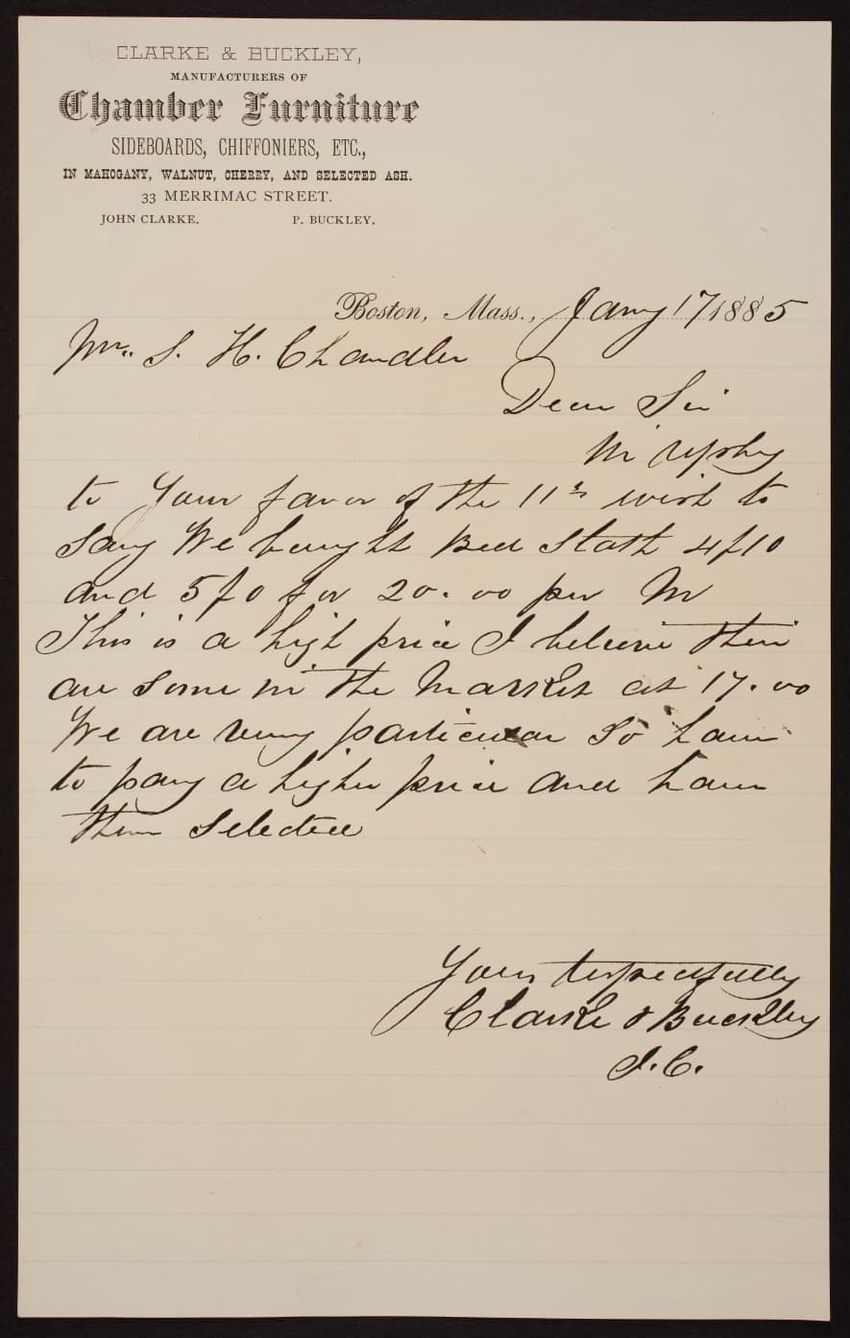 CLARKE & BUCKLEY,
MANUFACTURERS OF
Chamber Furniture
SIDEBOARDS, CHIFFONIERS, ETC.,
IN MAHOGANY, WALNUT, CHERRY, AND SELECTED ASH.
33 MERRIMAC STREET.
JOHN CLARKE. P. BUCKLEY.
Boston, Mass., Jany 17 1885
Mr. S. H. Chandler
Dear Sir
In
to Your favor of the 11th wish to
Say We bought Bed 4f10
and 5f0 for 20.00 per M
This is a high price I beleive their
are some in the Market at 17.00
We are very particular So have
to pay a higher price and have
them Selected
Yours respectfully
Clarke & Buckley
J.C.